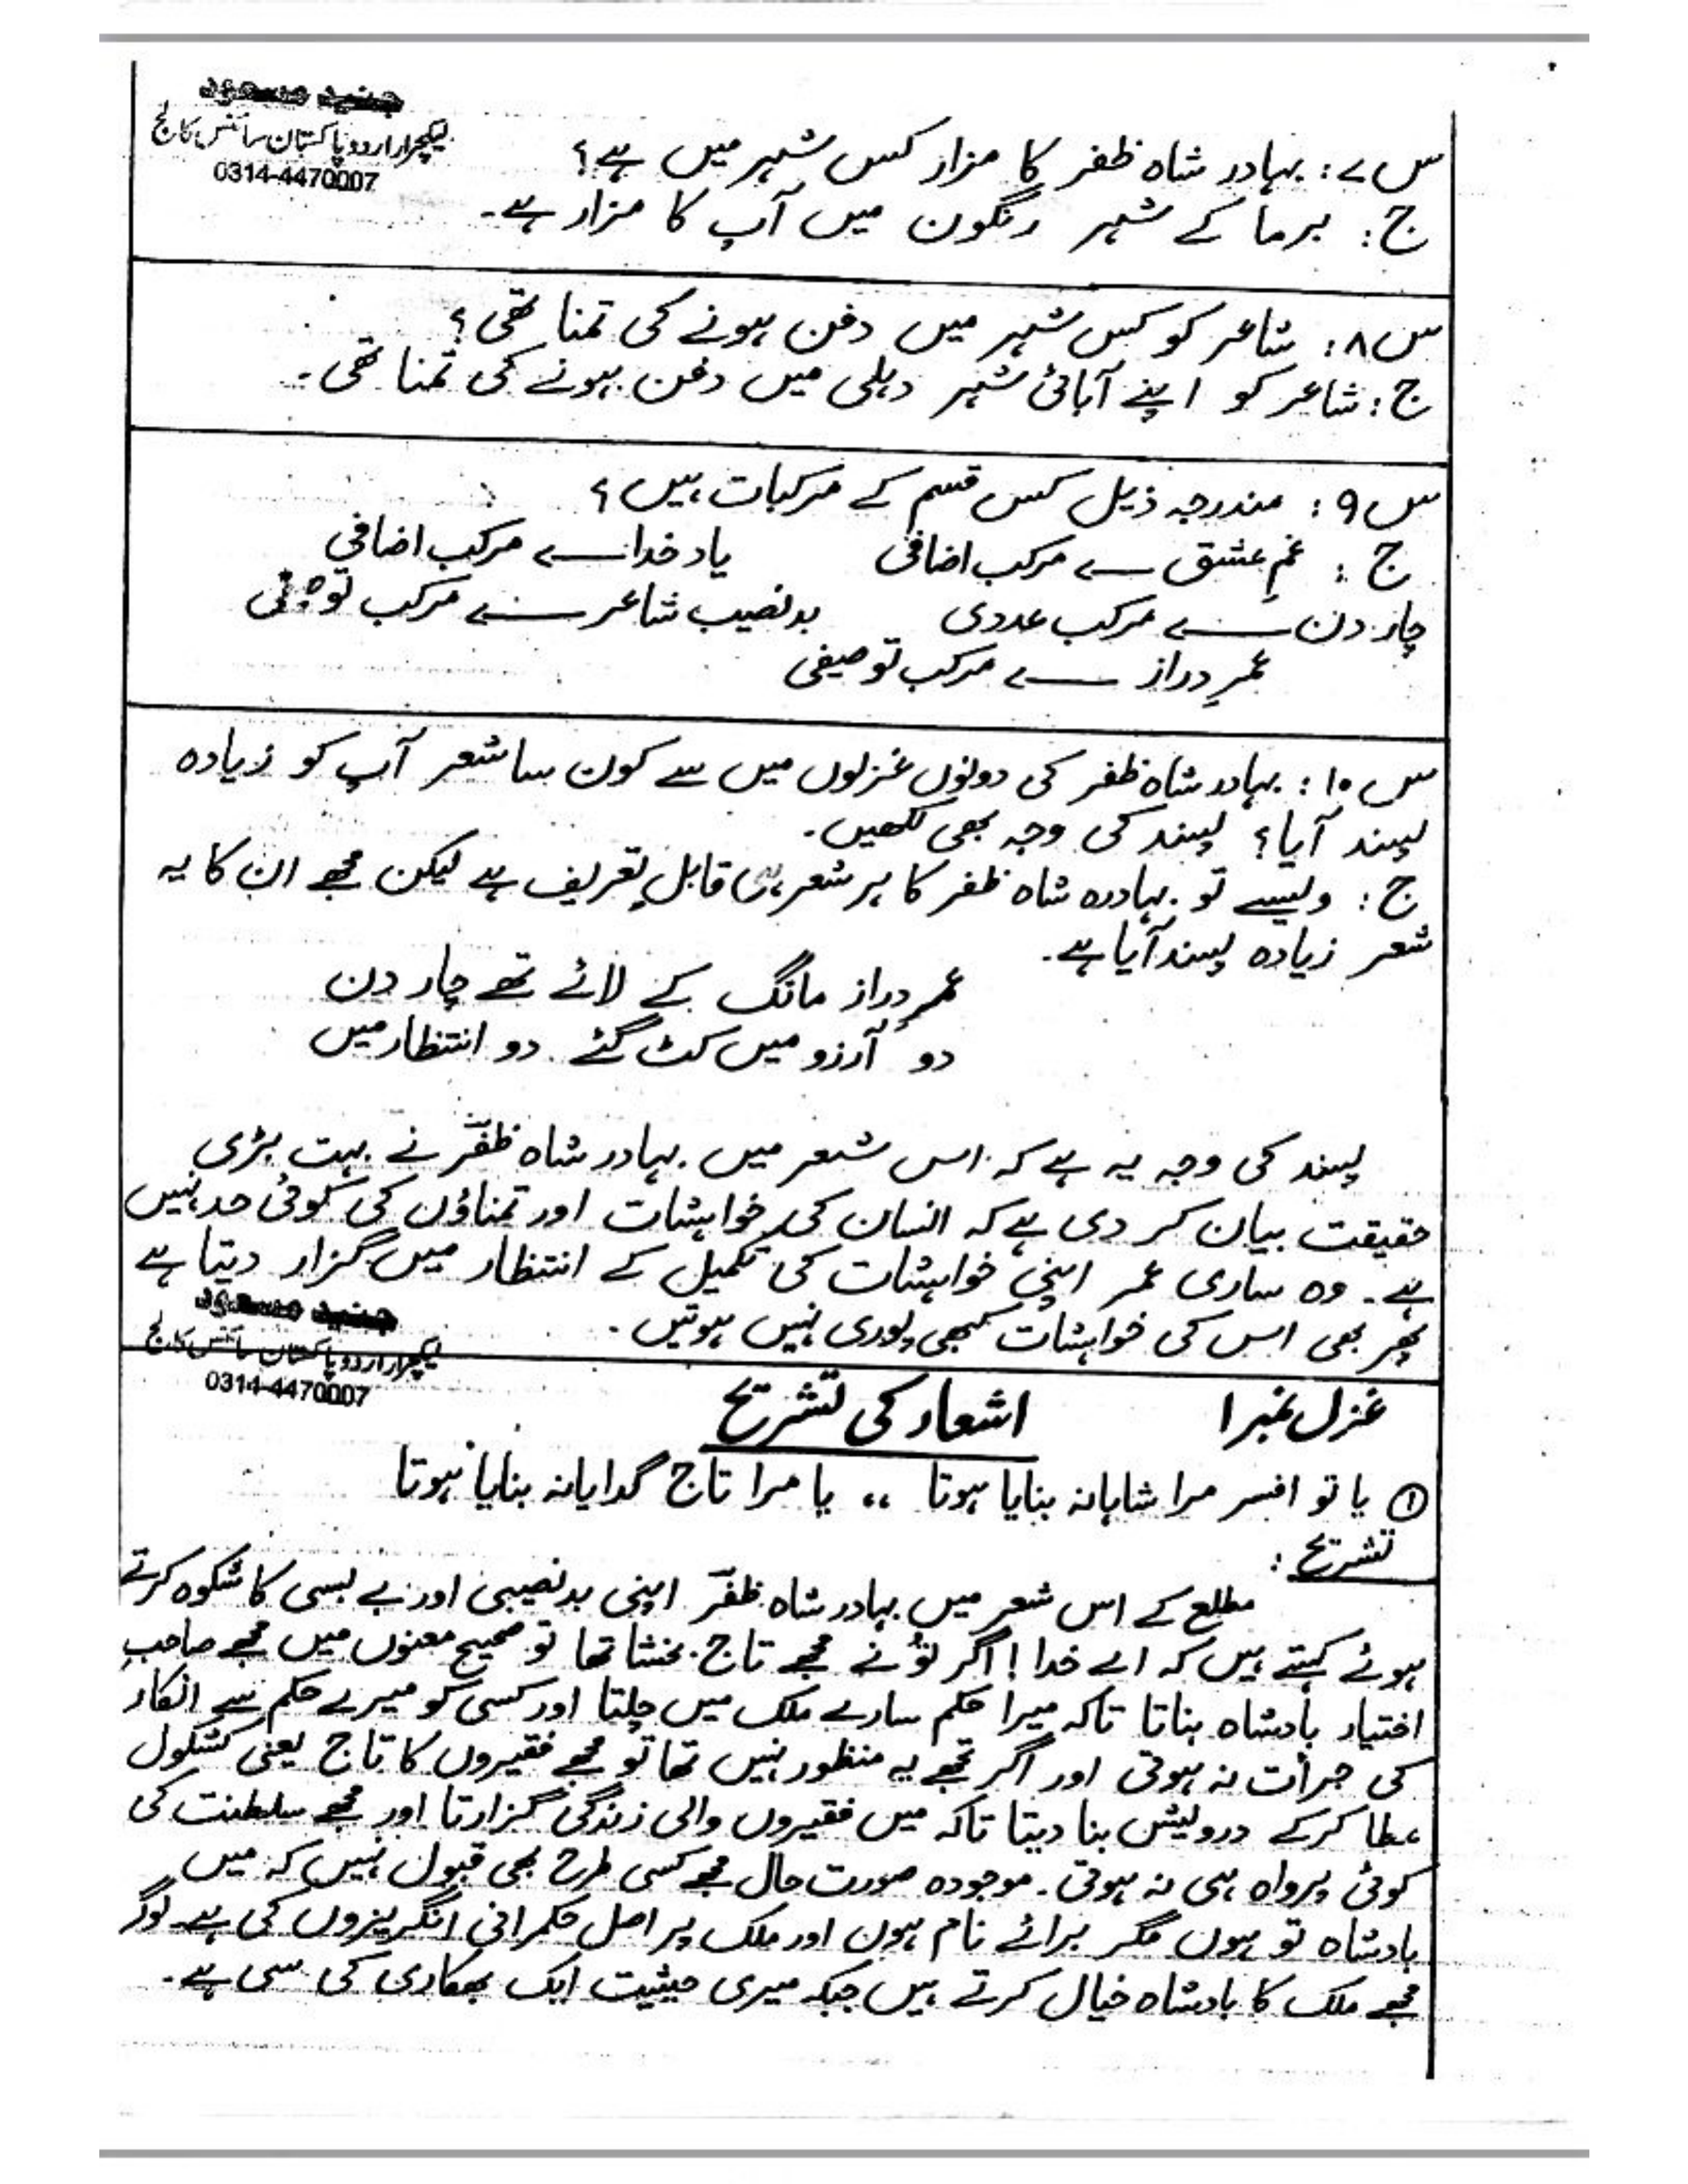 جنید مسعود
لیکچرار اردو پاکستان سائنس کالج
0314-4470007
س ۷: بہادر شاہ ظفر کا مزار کس شہر میں ہے؟
ج: برما کے شہر رنگون میں آپ کا مزار ہے۔
س ۸: شاعر کو کس شہر میں دفن ہونے کی تمنا تھی؟
ج: شاعر کو اپنے آبائی شہر دہلی میں دفن ہونے کی تمنا تھی۔
س ۹: مندرجہ ذیل کس قسم کے مرکبات ہیں؟
ج: غمِ عشق ــــے مرکب اضافی یاد خدا ــــے مرکب اضافی
چار دن ــــے مرکب عددی بدنصیب شاعر ــــے مرکب توصیفی
عمرِ دراز ــــے مرکب توصیفی
س ۱۰: بہادر شاہ ظفر کی دونوں غزلوں میں سے کون سا شعر آپ کو زیادہ
پسند آیا؟ پسند کی وجہ بھی لکھیں۔
ج: ویسے تو بہادرہ شاہ ظفر کا ہر شعر ہی قابلِ تعریف ہے لیکن مجھے ان کا یہ
شعر زیادہ پسند آیا ہے۔
عمرِ دراز مانگ کے لائے تھے چار دن
دو آرزو میں کٹ گئے دو انتظار میں
پسند کی وجہ یہ ہے کہ اس شعر میں بہادر شاہ ظفرؔ نے بہت بڑی
حقیقت بیان کر دی ہے کہ انسان کی خواہشات اور تمناؤں کی کوئی حد نہیں
ہے۔ وہ ساری عمر اپنی خواہشات کی تکمیل کے انتظار میں گزار دیتا ہے
پھر بھی اس کی خواہشات کبھی پوری نہیں ہوتیں۔
جنید مسعود
لیکچرار اردو پاکستان سائنس کالج
0314-4470007
غزل نمبر ۱ اشعار کی تشریح
① یا تو افسر مرا شاہانہ بنایا ہوتا ،، یا مرا تاج گدایانہ بنایا ہوتا
تشریح:
مطلع کے اس شعر میں بہادر شاہ ظفرؔ اپنی بدنصیبی اور بے بسی کا شکوہ کرتے
ہوئے کہتے ہیں کہ اے خدا! اگر تُو نے مجھے تاج بخشا تھا تو صحیح معنوں میں مجھے صاحبِ
اختیار بادشاہ بناتا تاکہ میرا حکم سارے ملک میں چلتا اور کسی کو میرے حکم سے انکار
کی جرأت نہ ہوتی اور اگر تجھے یہ منظور نہیں تھا تو مجھے فقیروں کا تاج یعنی کشکول
عطا کرکے درویش بنا دیتا تاکہ میں فقیروں والی زندگی گزارتا اور مجھے سلطنت کی
کوئی پرواہ ہی نہ ہوتی۔ موجودہ صورت حال مجھے کسی طرح بھی قبول نہیں کہ میں
بادشاہ تو ہوں مگر برائے نام ہوں اور ملک پر اصل حکمرانی انگریزوں کی ہے۔ لوگ
مجھے ملک کا بادشاہ خیال کرتے ہیں جبکہ میری حیثیت ایک بھکاری کی سی ہے۔